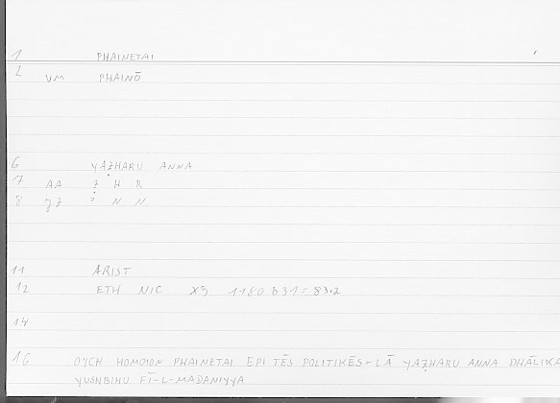 1 PHAINETAI
2 VM PHAINŌ
6 YAẒHARU ANNA
7 AA Ẓ H R
8 N N
11 ARIST
12 ETH NIC X9 1180 B31 = 83.2
14
16 OYCH HOMOION PHAINETAI EPI TĒS POLITIKĒS - LĀ YAẒHARU ANNA DHĀLIKA
YUSHBIHU FĪ-L-MADANIYYA